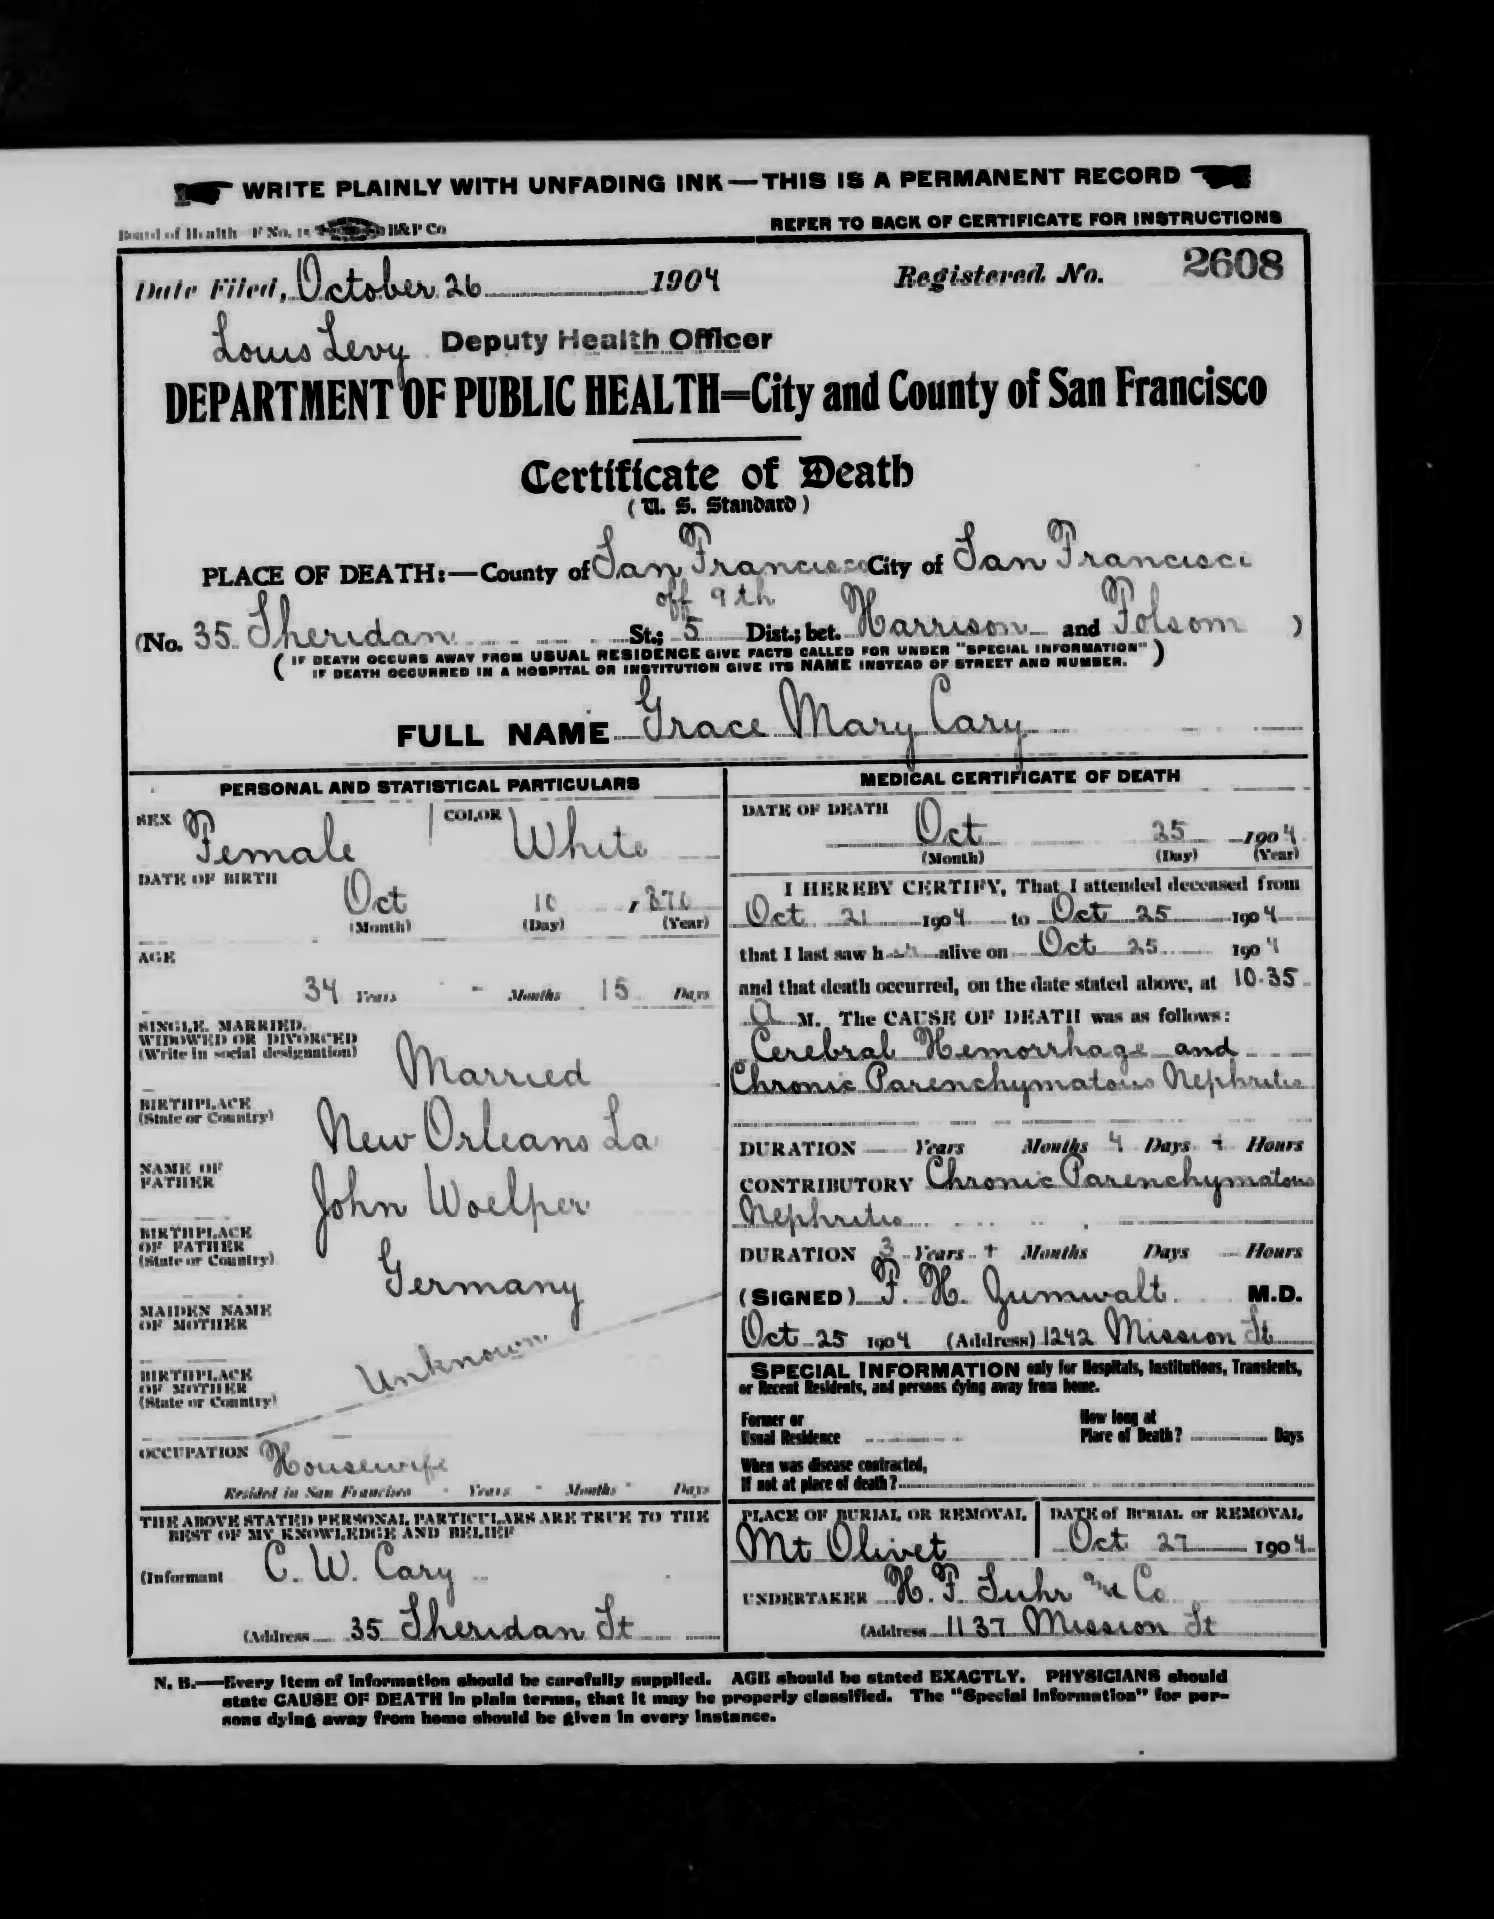 WRITE PLAINLY WITH UNFADING INK—THIS IS A PERMANENT RECORD
Board of Health F No. B&P Co
REFER TO BACK OF CERTIFICATE FOR INSTRUCTIONS
Date Filed, October 26 1904 Registered No. 2608
Louis Levy Deputy Health Officer
DEPARTMENT OF PUBLIC HEALTH=City and County of San Francisco
Certificate of Death
(U. S. Standard)
PLACE OF DEATH:—County of San Francisco City of San Francisco
off 9th
(No. 35 Sheridan St.; 5 Dist.; bet. Harrison and Folsom )
( IF DEATH OCCURS AWAY FROM USUAL RESIDENCE GIVE FACTS CALLED FOR UNDER "SPECIAL INFORMATION" )
IF DEATH OCCURRED IN A HOSPITAL OR INSTITUTION GIVE ITS NAME INSTEAD OF STREET AND NUMBER.
FULL NAME Grace Mary Cary
PERSONAL AND STATISTICAL PARTICULARS
SEX Female COLOR White
DATE OF BIRTH Oct 10 , 1870
(Month) (Day) (Year)
AGE
34 Years - Months 15 Days
SINGLE, MARRIED,
WIDOWED OR DIVORCED
(Write in social designation) Married
BIRTHPLACE
(State or Country) New Orleans La
NAME OF
FATHER John Woelper
BIRTHPLACE
OF FATHER
(State or Country) Germany
MAIDEN NAME
OF MOTHER
Unknown
BIRTHPLACE
OF MOTHER
(State or Country)
OCCUPATION Housewife
Resided in San Francisco - Years - Months - Days
THE ABOVE STATED PERSONAL PARTICULARS ARE TRUE TO THE
BEST OF MY KNOWLEDGE AND BELIEF
(Informant C. W. Cary
(Address 35 Sheridan St
MEDICAL CERTIFICATE OF DEATH
DATE OF DEATH
Oct 25 1904
(Month) (Day) (Year)
I HEREBY CERTIFY, That I attended deceased from
Oct 21 1904 to Oct 25 1904
that I last saw her alive on Oct 25 1904
and that death occurred, on the date stated above, at 10.35
A M. The CAUSE OF DEATH was as follows:
Cerebral Hemorrhage and
Chronic Parenchymatous Nephritis
DURATION — Years Months 4 Days + Hours
CONTRIBUTORY Chronic Parenchymatous
Nephritis
DURATION 3 Years + Months Days Hours
(SIGNED) F. H. Zumwalt M.D.
Oct 25 1904 (Address) 1242 Mission St
SPECIAL INFORMATION only for Hospitals, Institutions, Transients,
or Recent Residents, and persons dying away from home.
Former or
Usual Residence
How long at
Place of Death? Days
When was disease contracted,
If not at place of death?
PLACE OF BURIAL OR REMOVAL
Mt Olivet
DATE of BURIAL or REMOVAL
Oct 27 1904
UNDERTAKER H. F. Suhr and Co
(Address 1137 Mission St
N. B.—Every item of information should be carefully supplied. AGE should be stated EXACTLY. PHYSICIANS should
state CAUSE OF DEATH in plain terms, that it may be properly classified. The "Special Information" for per-
sons dying away from home should be given in every instance.